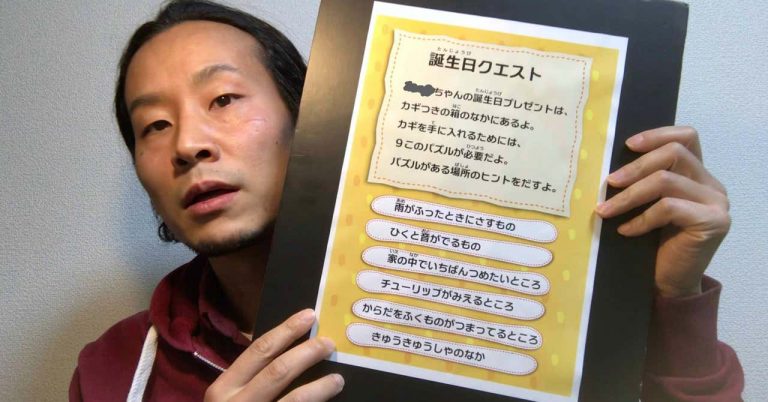 誕生日クエスト
ちゃんの誕生日プレゼントは、
カギつきの箱のなかにあるよ。
カギを手に入れるためには、
9このパズルが必要だよ。
パズルがある場所のヒントをだすよ。
雨がふったときにさすもの
ひくと音がでるもの
家の中でいちばんつめたいところ
チューリップがみえるところ
からだをふくものがつまってるところ
きゅうきゅうしゃのなか